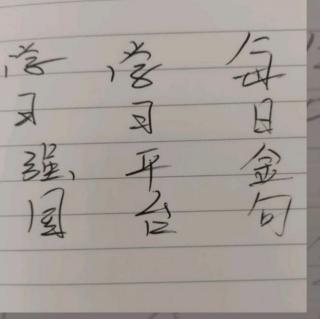 学习强国
学习平台
每日金句